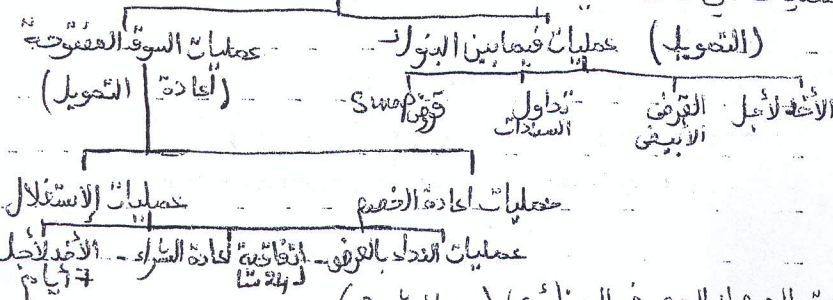 (التمويل) عمليات فيما بين البنوك عمليات السوق المفتوحة
(إعادة التمويل)
الأخذ لأجل القرض الأبيض تداول السندات قرض Swap
عمليات إعادة الخصم عمليات الإستغلال
عمليات النداء بالعرض - إتفاقية إعادة الشراء - الأخذ لأجل
لـ 24 سا 7 أيام